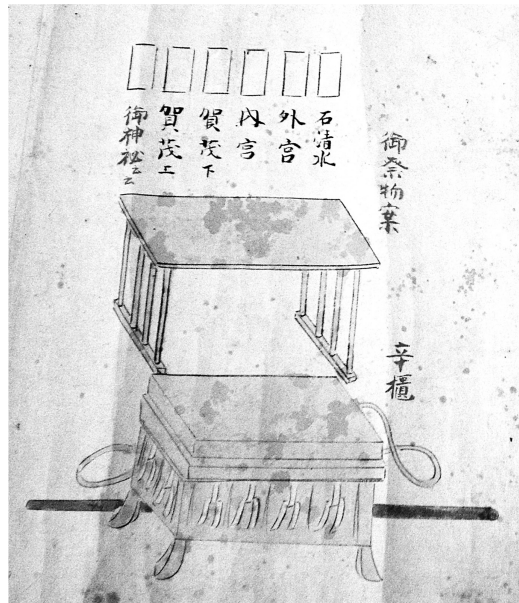 御祭物案
石清水
外宮
内宮
賀茂下
賀茂上
御神祕
辛櫃